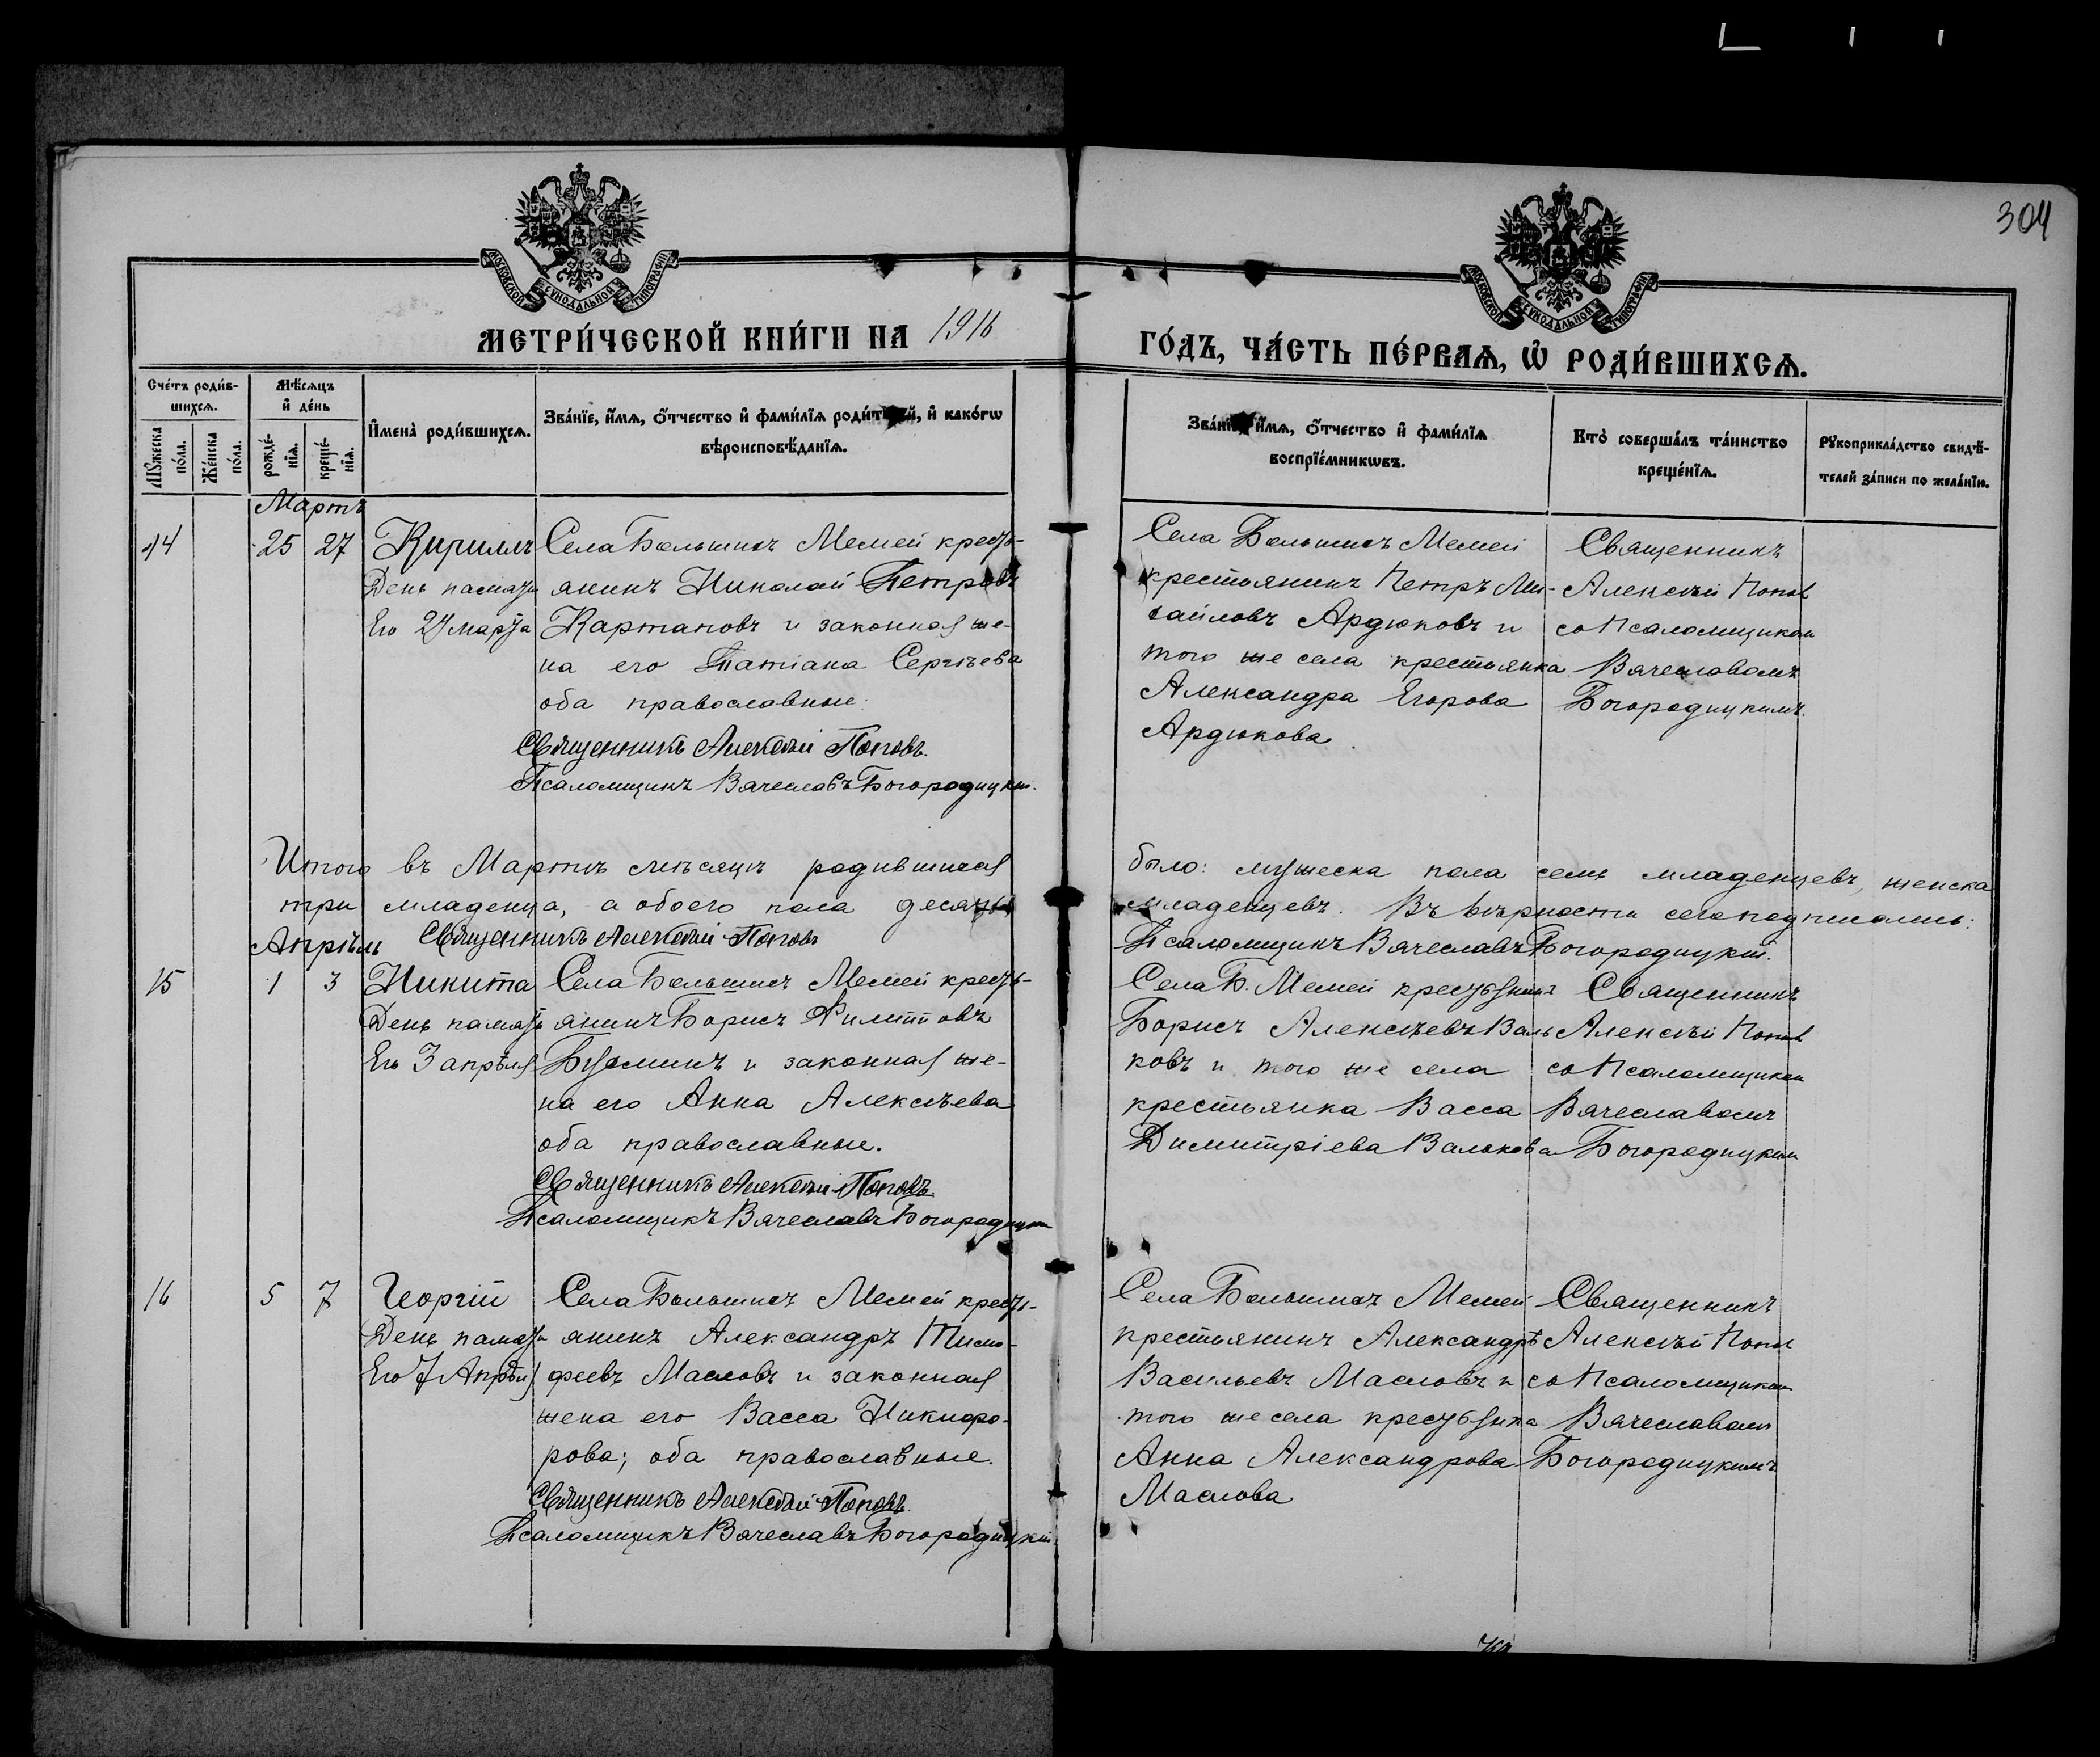 304
МОСКОВСКОЙ СѴНОДАЛЬНОЙ ТИПОГРАФІИ
МОСКОВСКОЙ СѴНОДАЛЬНОЙ ТИПОГРАФІИ
МЕТРИ́ЧЕСКОЙ КНИ́ГИ НА 1916
ГО́ДЪ, ЧА́СТЬ ПЕ́РВАѦ, Ѡ҆ РОДИ́ВШИХСѦ.
Сче́тъ роди́в-
шихсѧ.
Мѣ́сѧцъ
и҆ де́нь
Мꙋ́жеска
по́ла.
Же́нска
по́ла.
рожде́-
нїѧ.
креще́-
нїѧ.
И҆мена̀ роди́вшихсѧ.
Зва́нїе, и҆́мѧ, ѻ҆́тчество и҆ фами́лїѧ роди́телей, и҆ како́гѡ
вѣроисповѣ́данїѧ.
Зва́нїе, и҆́мѧ, ѻ҆́тчество и҆ фами́лїѧ
воспрїе́мникѡвъ.
Кто̀ соверша́лъ та́инство
креще́нїѧ.
Рꙋкоприкла́дство свидѣ́-
телей за́писи по жела́нїю.
Мартъ
14 25 27 Кириллъ Села Большихъ Мемей кресть-
День памяти янинъ Николай Петровъ
Его 29 марта Картановъ и законная же-
на его Татіана Сергѣева
оба православные.
Священникъ Алексѣй Поповъ.
Псаломщикъ Вячеславъ Богородицкій.
Села Большихъ Мемей
крестьянинъ Петръ Ми-
хайловъ Ардюковъ и
того же села крестьянка
Александра Егорова
Ардюкова
Священникъ
Алексѣй Попов
со Псаломщиком
Вячеславомъ
Богородицкимъ.
Итого въ Мартѣ мѣсяцѣ родившихся
было: мужеска пола семь младенцевъ, женска
три младенца, а обоего пола десять
младенцевъ. Въ вѣрности сего подписались:
Апрѣль Священникъ Алексѣй Поповъ
Псаломщикъ Вячеславъ Богородицкій.
15 1 3 Никита Села Большихъ Мемей кресть-
День памяти янинъ Борисъ Филипповъ
Его 3 апрѣля и законная же-
на его Анна Алексѣева
оба православные.
Священникъ Алексѣй Поповъ.
Псаломщикъ Вячеславъ Богородицкій
Села Б. Мемей крестьянинъ
Борисъ Алексѣевъ Валь
ковъ и того же села
крестьянка Васса
Димитріева Валькова
Священникъ
Алексѣй Попов
со Псаломщиком
Вячеславомъ
Богородицким
16 5 7 Георгій Села Большихъ Мемей кресть-
День памяти янинъ Александръ Тимо-
Его 7 Апрѣля феевъ Масловъ и законная
жена его Васса Никифо-
рова; оба православные.
Священникъ Алексѣй Поповъ.
Псаломщикъ Вячеславъ Богородицкій
Села Большихъ Мемей
крестьянинъ Александръ
Васильевъ Масловъ и
того же села крестьянка
Анна Александрова
Маслова
Священникъ
Алексѣй Попов
со Псаломщиком
Вячеславомъ
Богородицкимъ